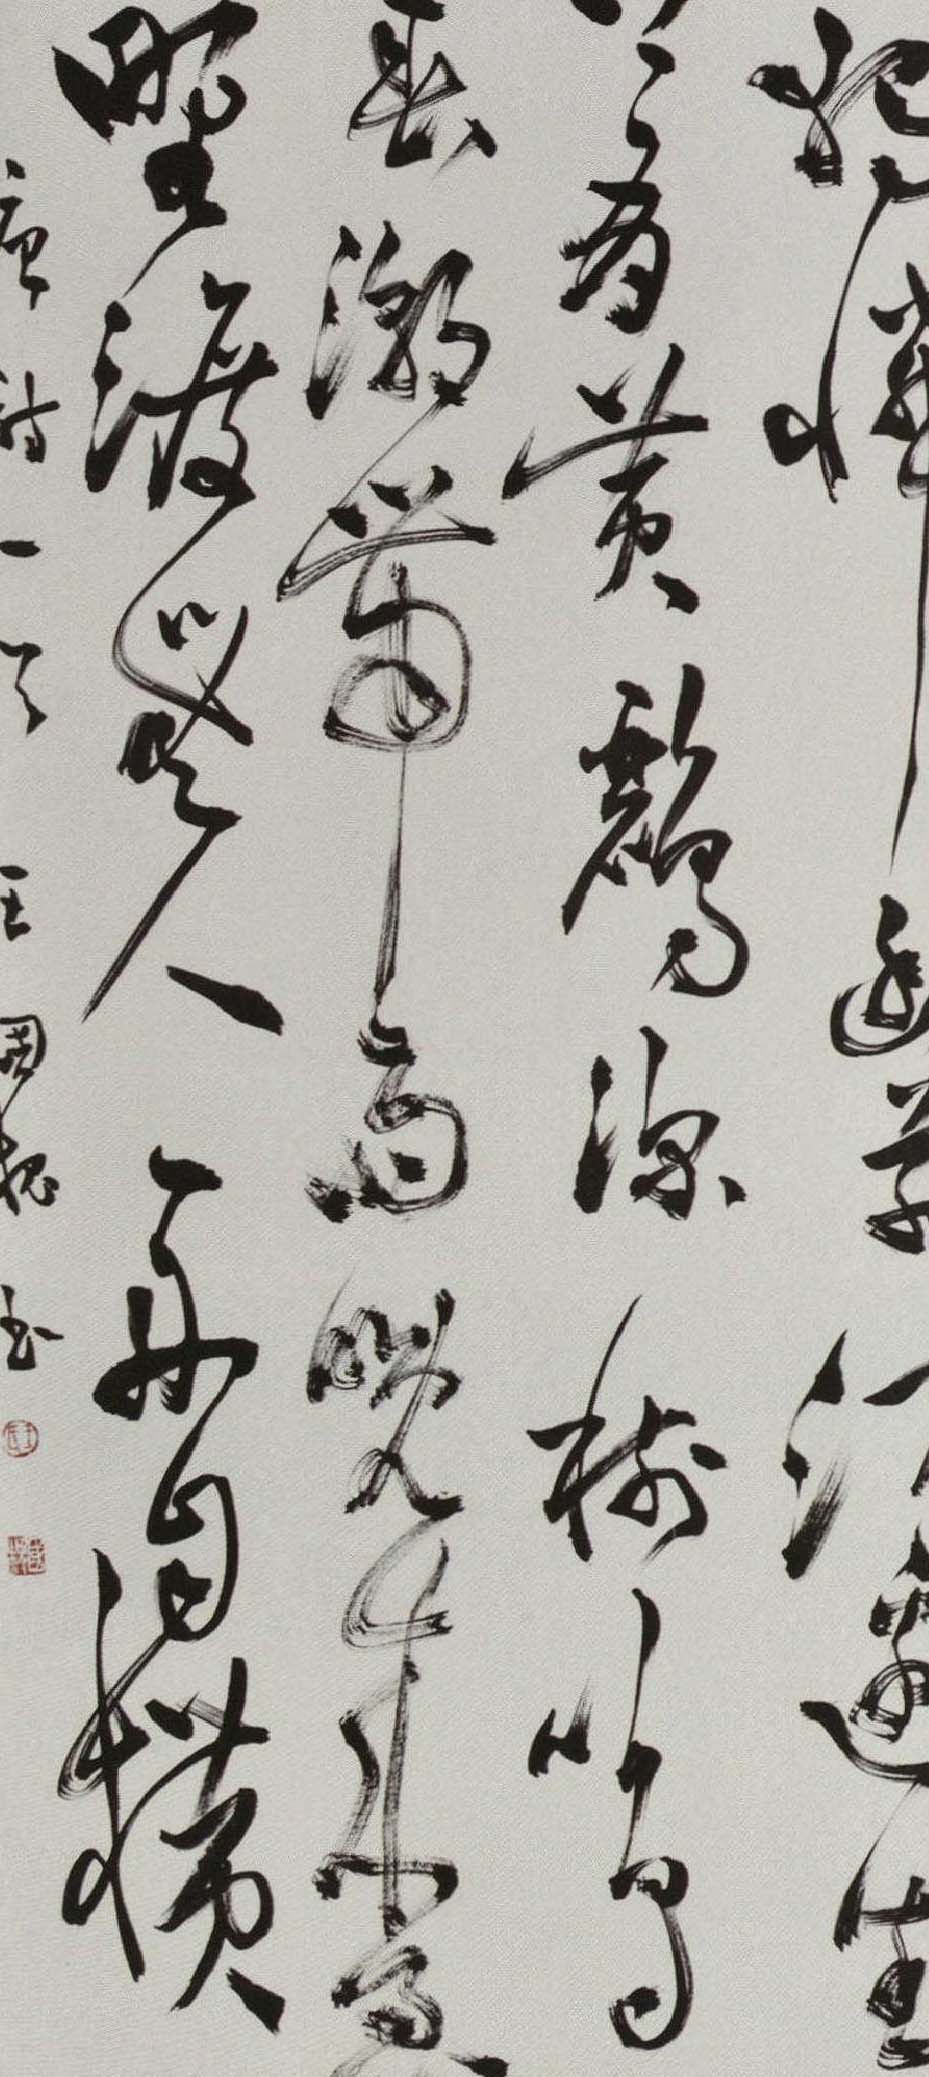 獨憐幽草澗邊生
上有黃鸝深樹鳴
春潮帶雨晚來急
野渡無人舟自橫
唐詩一首 王國